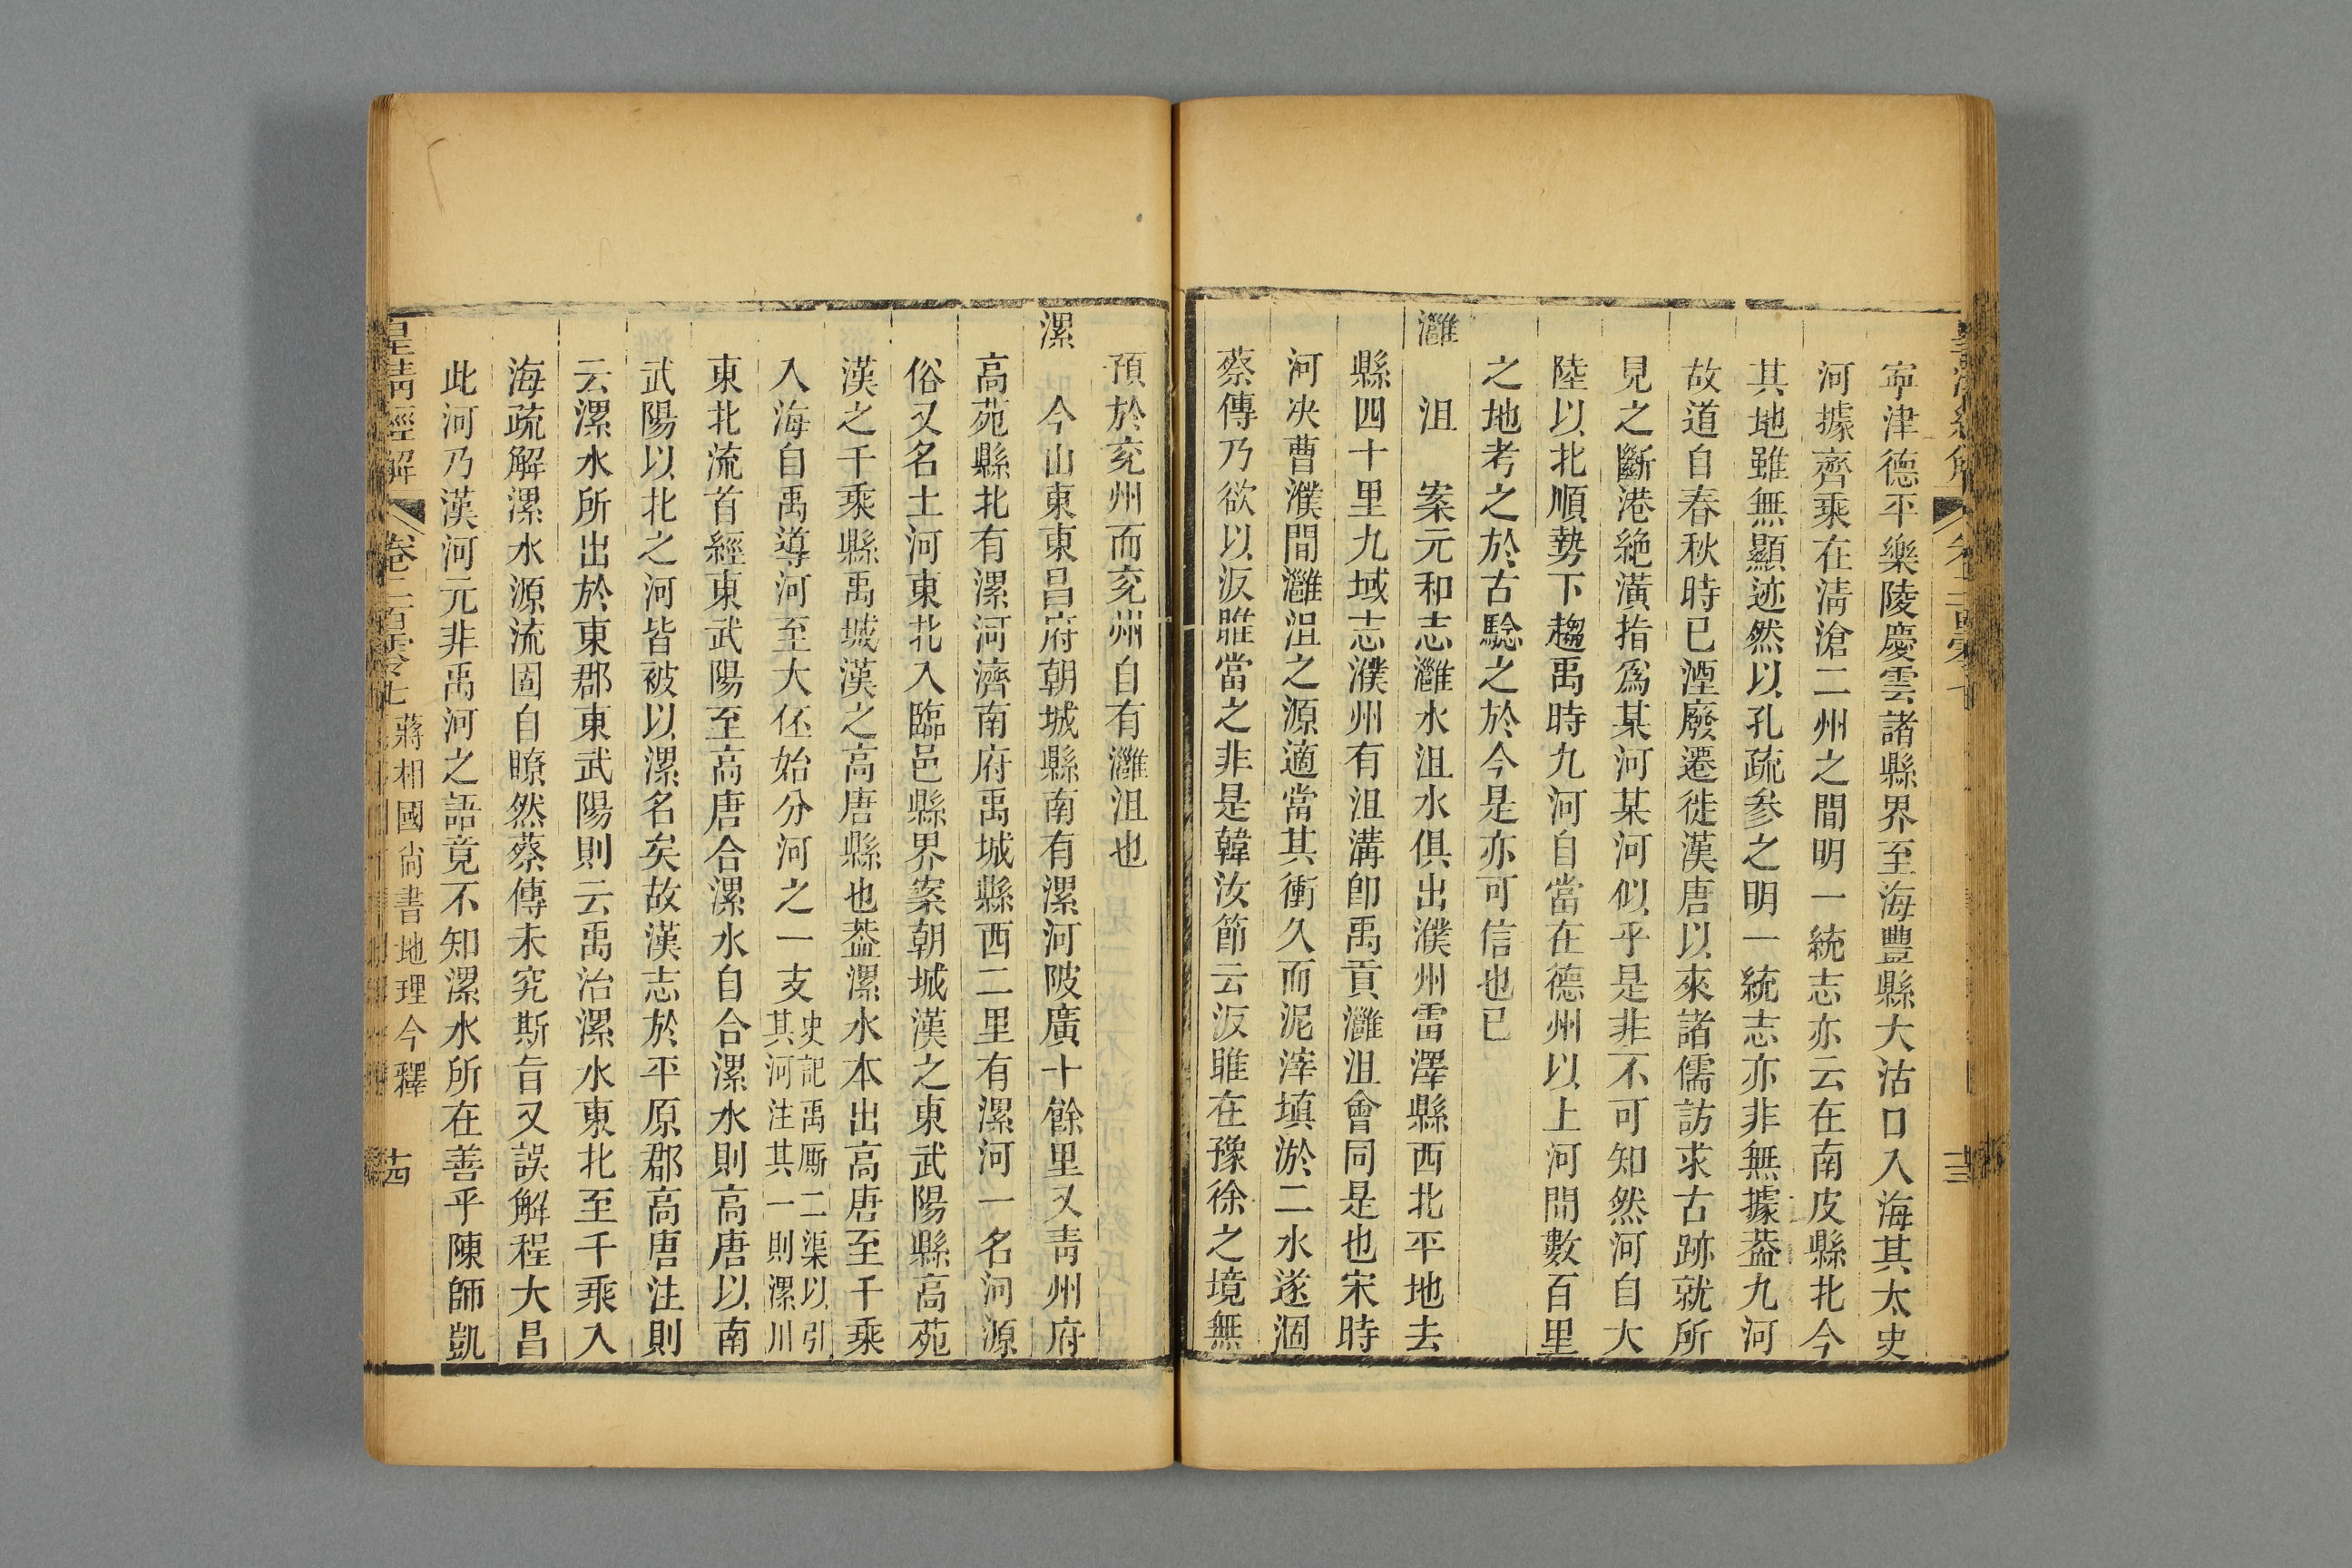 寕津德平樂陵慶雲諸縣界至海豐縣大沽口入海其太史
河據齊乘在淸滄二州之間明一統志亦云在南皮縣北今
其地雖無顯迹然以孔疏參之明一統志亦非無據葢九河
故道自春秋時已湮廢遷徙漢唐以來諸儒訪求古跡就所
見之斷港絶潢指爲某河某河似乎是非不可知然河自大
陸以北順勢下趨禹時九河自當在德州以上河間數百里
之地考之於古騐之於今是亦可信也已
灉沮　案元和志灉水沮水俱出濮州雷澤縣西北平地去
縣四十里九域志濮州有沮溝卽禹貢灉沮會同是也宋時
河決曹濮間灉沮之源適當其衝久而泥滓填淤二水遂涸
蔡傳乃欲以汳睢當之非是韓汝節云汳睢在豫徐之境無
預於兖州而兖州自有灉沮也
漯　今山東東昌府朝城縣南有漯河陂廣十餘里又靑州府
高苑縣北有漯河濟南府禹城縣西二里有漯河一名河源
俗又名土河東北入臨邑縣界案朝城漢之東武陽縣高苑
漢之千乘縣禹城漢之高唐縣也葢漯水本出高唐至千乘
入海自禹導河至大伾始分河之一支史記禹厮二渠以引其河注其一則漯川
東北流首經東武陽至高唐合漯水自合漯水則高唐以南
武陽以北之河皆被以漯名矣故漢志於平原郡高唐注則
云漯水所出於東郡東武陽則云禹治漯水東北至千乘入
海疏解漯水源流固自瞭然蔡傳未究斯旨又誤解程大昌
此河乃漢河元非禹河之語竟不知漯水所在善乎陳師凱
皇淸經解　卷二百零七　蔣相國尙書地理今釋　十四